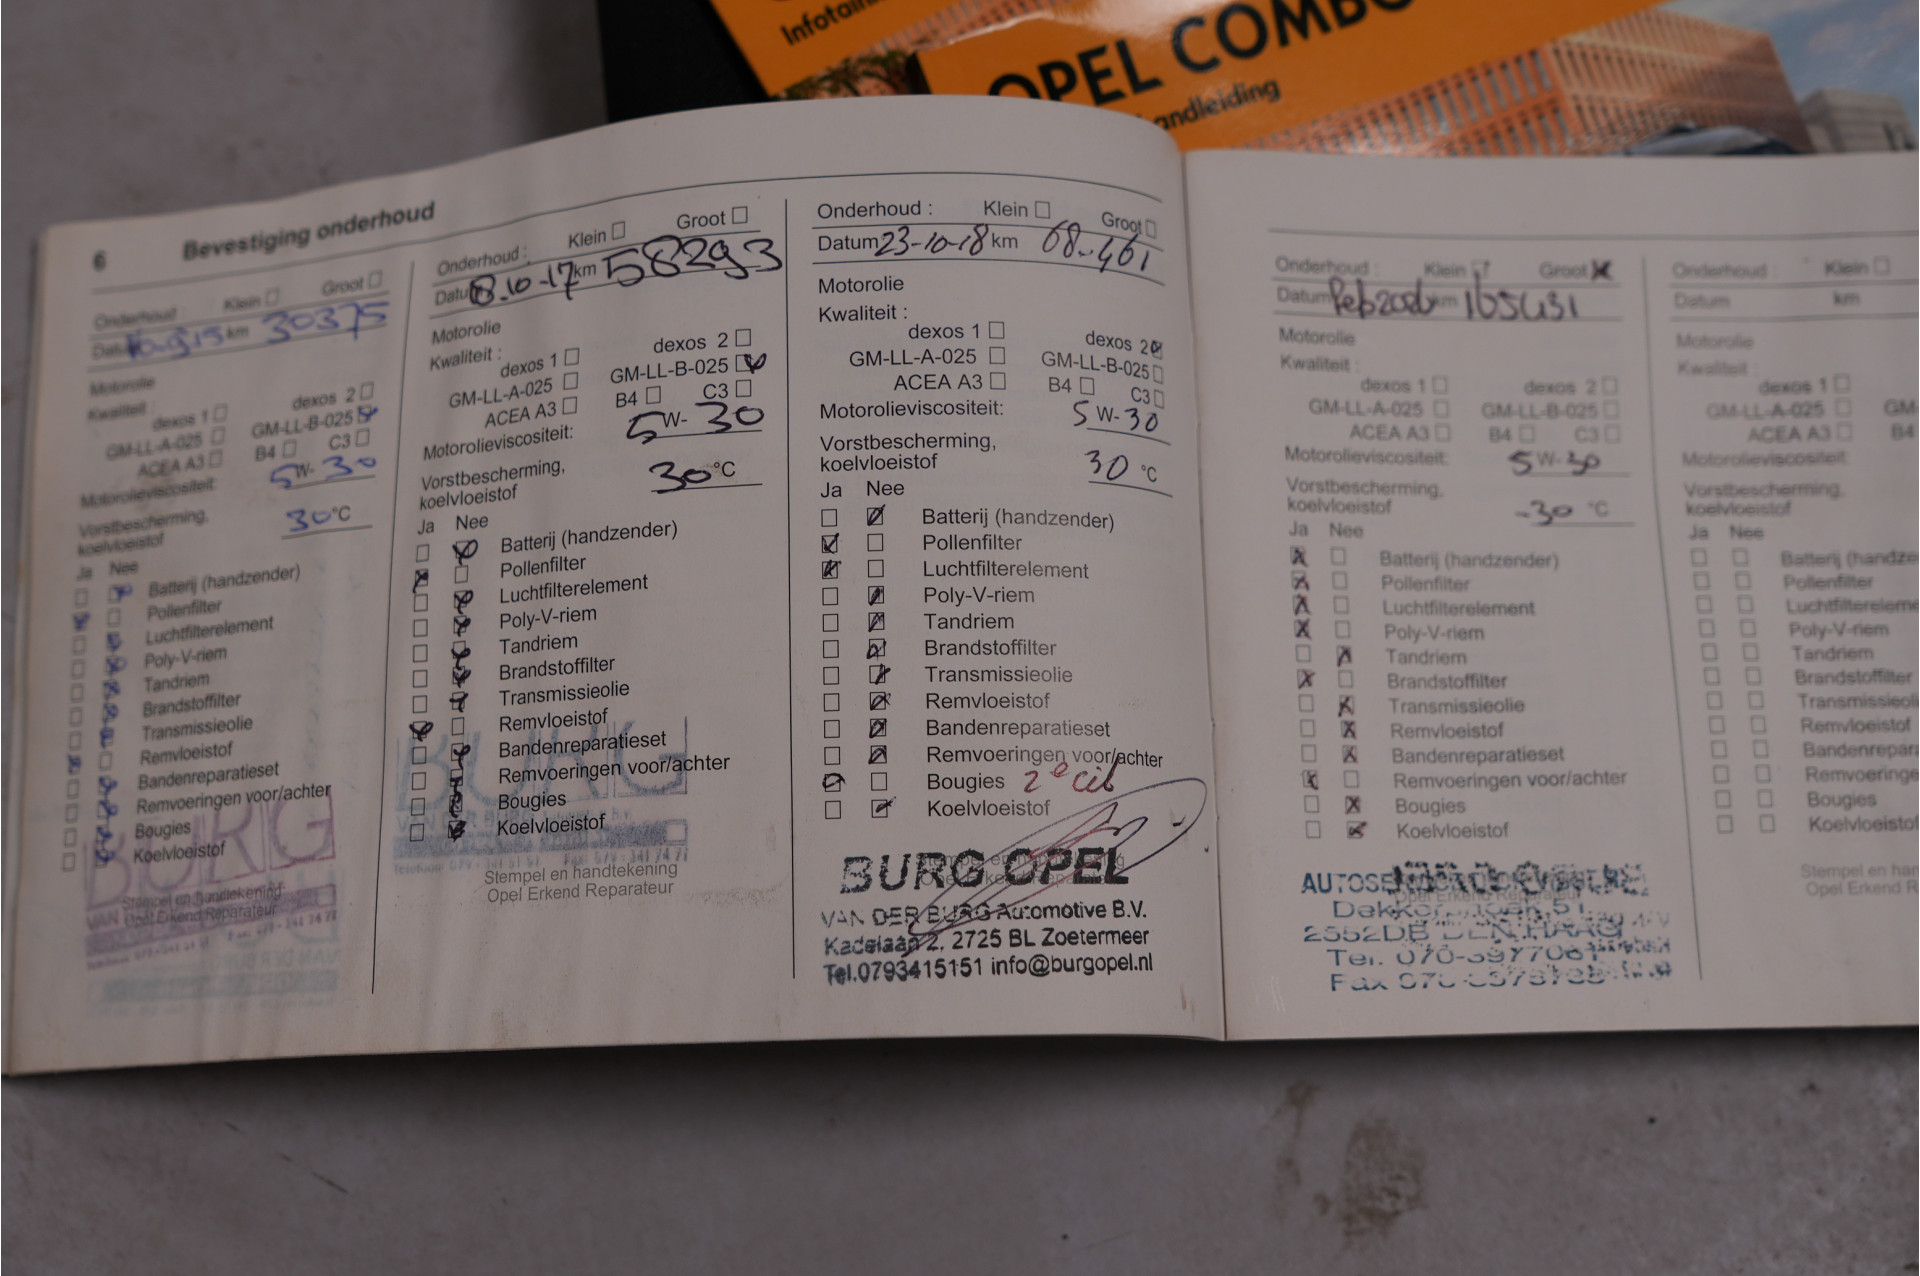 OPEL COMBO
6 Bevestiging onderhoud
Onderhoud : Klein Groot
km 30375
Motorolie
Kwaliteit :
dexos 1 dexos 2
GM-LL-A-025 GM-LL-B-025
ACEA A3 B4 C3
Motorolieviscositeit: 5 W- 30
Vorstbescherming,
koelvloeistof 30 °C
Ja Nee
Batterij (handzender)
Pollenfilter
Luchtfilterelement
Poly-V-riem
Tandriem
Brandstoffilter
Transmissieolie
Remvloeistof
Bandenreparatieset
Remvoeringen voor/achter
Bougies
Koelvloeistof
BURG
Stempel en handtekening
Opel Erkend Reparateur
Onderhoud : Klein Groot
Datum 8-10-17 km 58293
Motorolie
Kwaliteit :
dexos 1 dexos 2
GM-LL-A-025 GM-LL-B-025
ACEA A3 B4 C3
Motorolieviscositeit: 5 W- 30
Vorstbescherming,
koelvloeistof 30 °C
Ja Nee
Batterij (handzender)
Pollenfilter
Luchtfilterelement
Poly-V-riem
Tandriem
Brandstoffilter
Transmissieolie
Remvloeistof
Bandenreparatieset
Remvoeringen voor/achter
Bougies
Koelvloeistof
BURG
Stempel en handtekening
Opel Erkend Reparateur
Onderhoud : Klein Groot
Datum 23-10-18 km 68.461
Motorolie
Kwaliteit :
dexos 1 dexos 2
GM-LL-A-025 GM-LL-B-025
ACEA A3 B4 C3
Motorolieviscositeit: 5 W- 30
Vorstbescherming,
koelvloeistof 30 °C
Ja Nee
Batterij (handzender)
Pollenfilter
Luchtfilterelement
Poly-V-riem
Tandriem
Brandstoffilter
Transmissieolie
Remvloeistof
Bandenreparatieset
Remvoeringen voor/achter
Bougies 2e
Koelvloeistof
Stempel en handtekening
BURG OPEL
VAN DER BURG Automotive B.V.
Kadelaan 2, 2725 BL Zoetermeer
Tel.0793415151 info@burgopel.nl
Onderhoud : Klein Groot
Datum feb 2020 km 165431
Motorolie
Kwaliteit :
dexos 1 dexos 2
GM-LL-A-025 GM-LL-B-025
ACEA A3 B4 C3
Motorolieviscositeit: 5 W-30
Vorstbescherming,
koelvloeistof -30 °C
Ja Nee
Batterij (handzender)
Pollenfilter
Luchtfilterelement
Poly-V-riem
Tandriem
Brandstoffilter
Transmissieolie
Remvloeistof
Bandenreparatieset
Remvoeringen voor/achter
Bougies
Koelvloeistof
2552DB DEN HAAG
Onderhoud : Klein
Datum km
Motorolie
Kwaliteit :
dexos 1
GM-LL-A-025 GM-
ACEA A3 B4
Motorolieviscositeit:
Vorstbescherming,
koelvloeistof
Ja Nee
Batterij (handze
Pollenfilter
Luchtfiltereleme
Poly-V-riem
Tandriem
Brandstoffilter
Transmissieoli
Remvloeistof
Bandenrepara
Remvoeringe
Bougies
Koelvloeistof
Stempel en han
Opel Erkend R